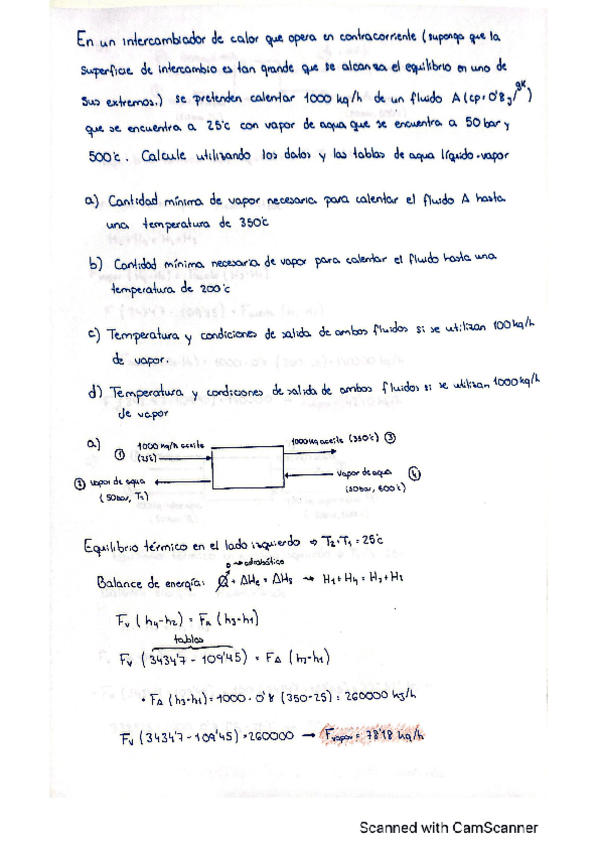 En un intercambiador de calor que opera en contracorriente (suponga que la
superficie de intercambio es tan grande que se alcanza el equilibrio en uno de
sus extremos.) se pretenden calentar 1000 kg/h de un fluido A (cp=0'8 J/gK)
que se encuentra a 25°c con vapor de agua que se encuentra a 50 bar y
500°c. Calcule utilizando los datos y las tablas de agua líquido-vapor
a) Cantidad mínima de vapor necesaria para calentar el fluido A hasta
una temperatura de 350°c
b) Cantidad mínima necesaria de vapor para calentar el fluido hasta una
temperatura de 200°c
c) Temperatura y condiciones de salida de ambos fluidos si se utilizan 100 kg/h
de vapor.
d) Temperatura y condiciones de salida de ambos fluidos si se utilizan 1000 kg/h
de vapor
a) ① 1000 kg/h aceite 1000 kg aceite (350°c) ③
(25°c)
② vapor de agua vapor de agua ④
(50bar, T2) (50bar, 500°c)
Equilibrio térmico en el lado izquierdo ⇒ T2=T1=25°c
0 → adiabático
Balance de energía: Q + ΔHe = ΔHs → H1+H4 = H3+H2
Fv (h4-h2) = FA (h3-h1)
tablas
Fv (3434'7 - 109'45) = FA (h3-h1)
• FA (h3-h1) = 1000 · 0'8 (350-25) = 260000 kJ/h
Fv (3434'7 - 109'45) = 260000 → Fvapor = 78'18 kg/h
Scanned with CamScanner